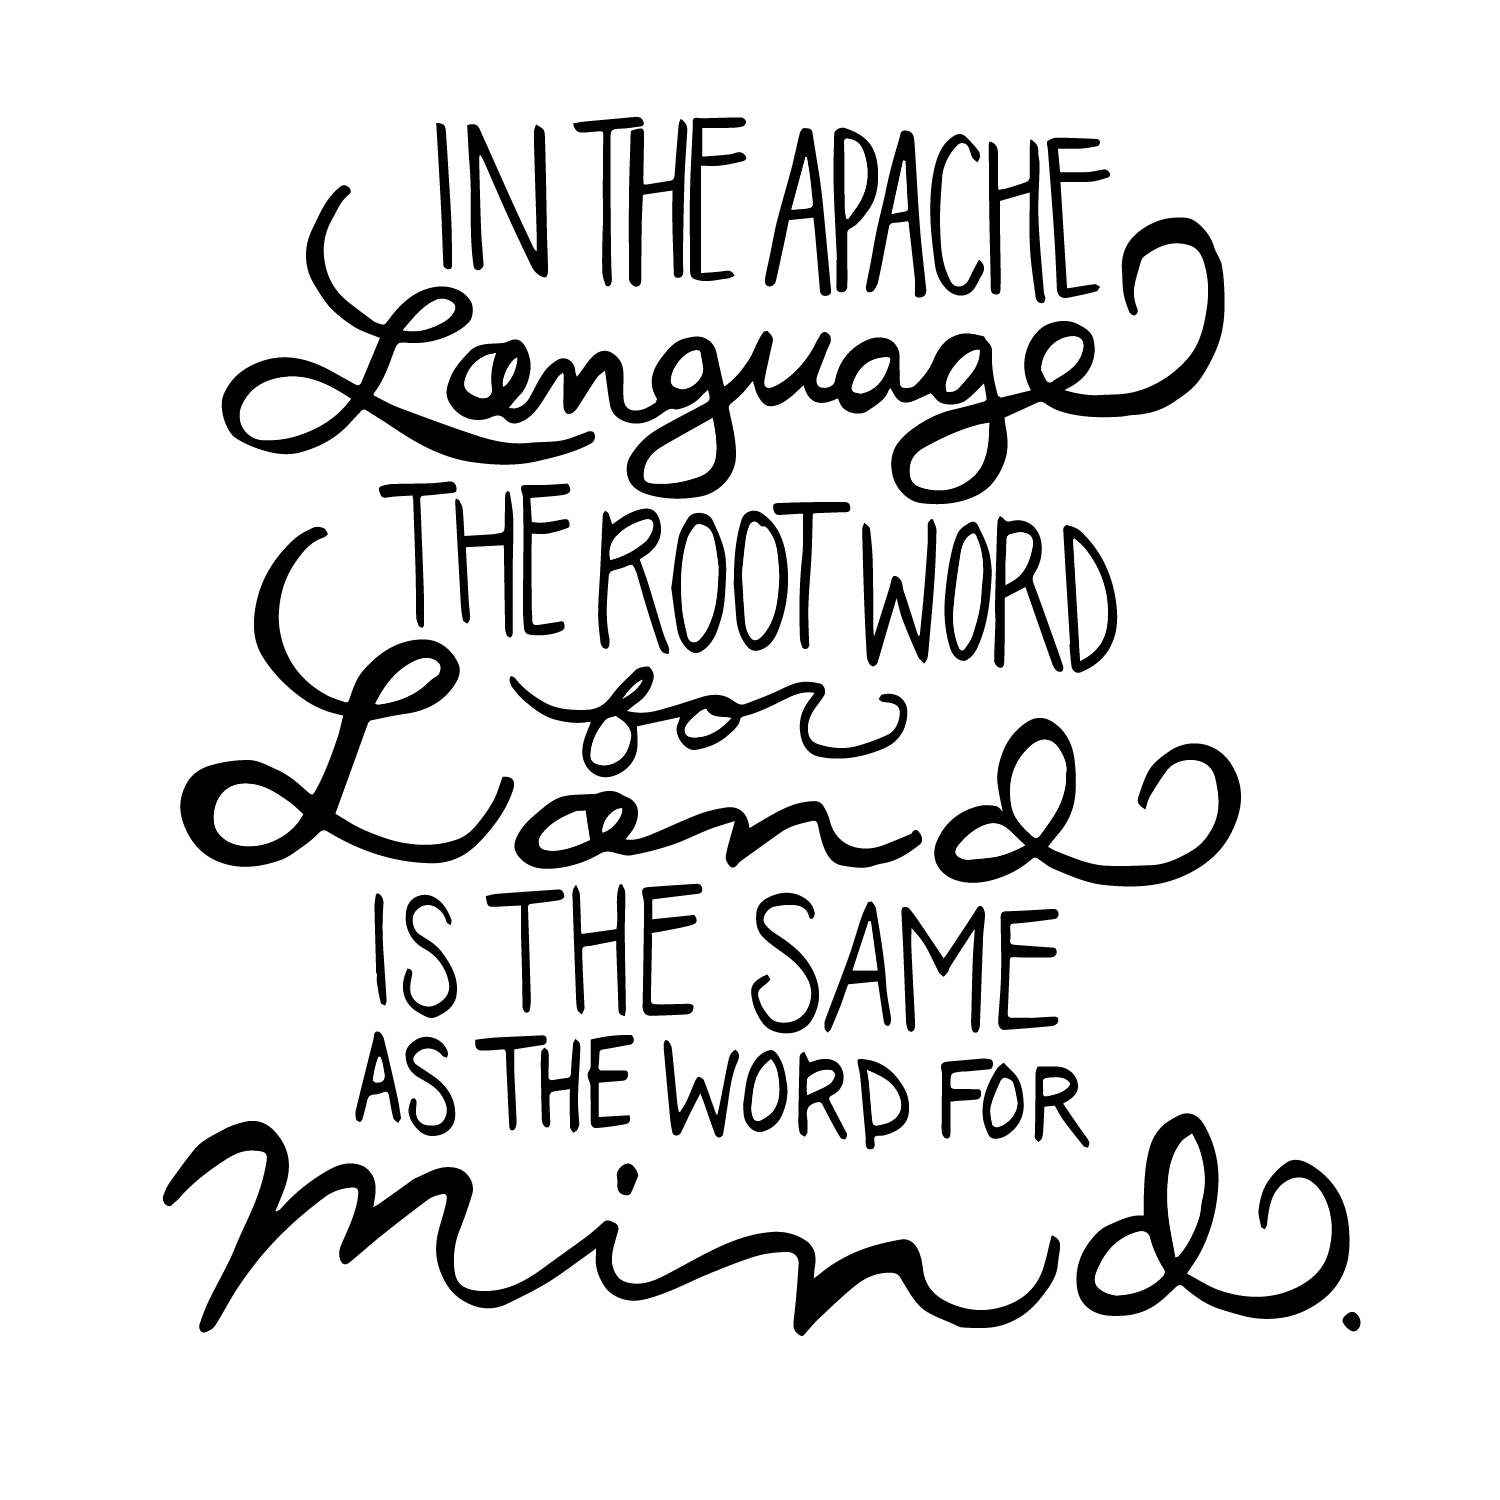 IN THE APACHE
Language
THE ROOT WORD
for
Land
IS THE SAME
AS THE WORD FOR
mind.